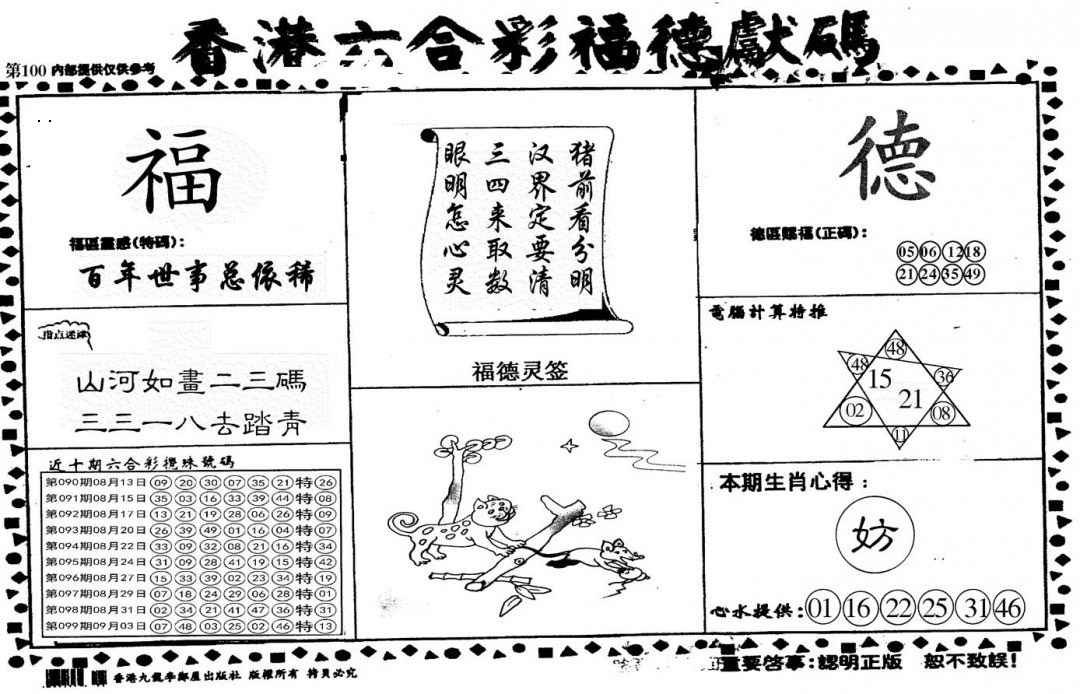 香港六合彩福德獻碼
第100 内部提供仅供参考
福
福區靈感(特碼):
百年世事总依稀
指点迷津
山河如畫二三碼
三三一八去踏青
近十期六合彩攪珠號碼
第090期08月13日 09 20 30 07 35 21 特 26
第091期08月15日 35 03 16 33 39 44 特 08
第092期08月17日 13 21 19 28 06 26 特 09
第093期08月20日 26 39 49 01 16 04 特 07
第094期08月22日 33 09 32 08 21 16 特 34
第095期08月24日 31 09 28 41 19 15 特 42
第096期08月27日 15 33 39 02 23 34 特 19
第097期08月29日 07 18 24 29 06 28 特 01
第098期08月31日 02 34 21 41 47 36 特 31
第099期09月03日 07 48 03 25 02 46 特 13
猪前看分明
汉界定要清
三四来取数
眼明怎心灵
福德灵签
德
德區賜福(正碼):
05 06 12 18
21 24 35 49
電腦計算特推
48
48 15 36
21
02 08
11
本期生肖心得:
妨
心水提供: 01 16 22 25 31 46
香港九龍李鄭屋出版社 版權所有 拷貝必究
重要啓事:認明正版 恕不致誤!